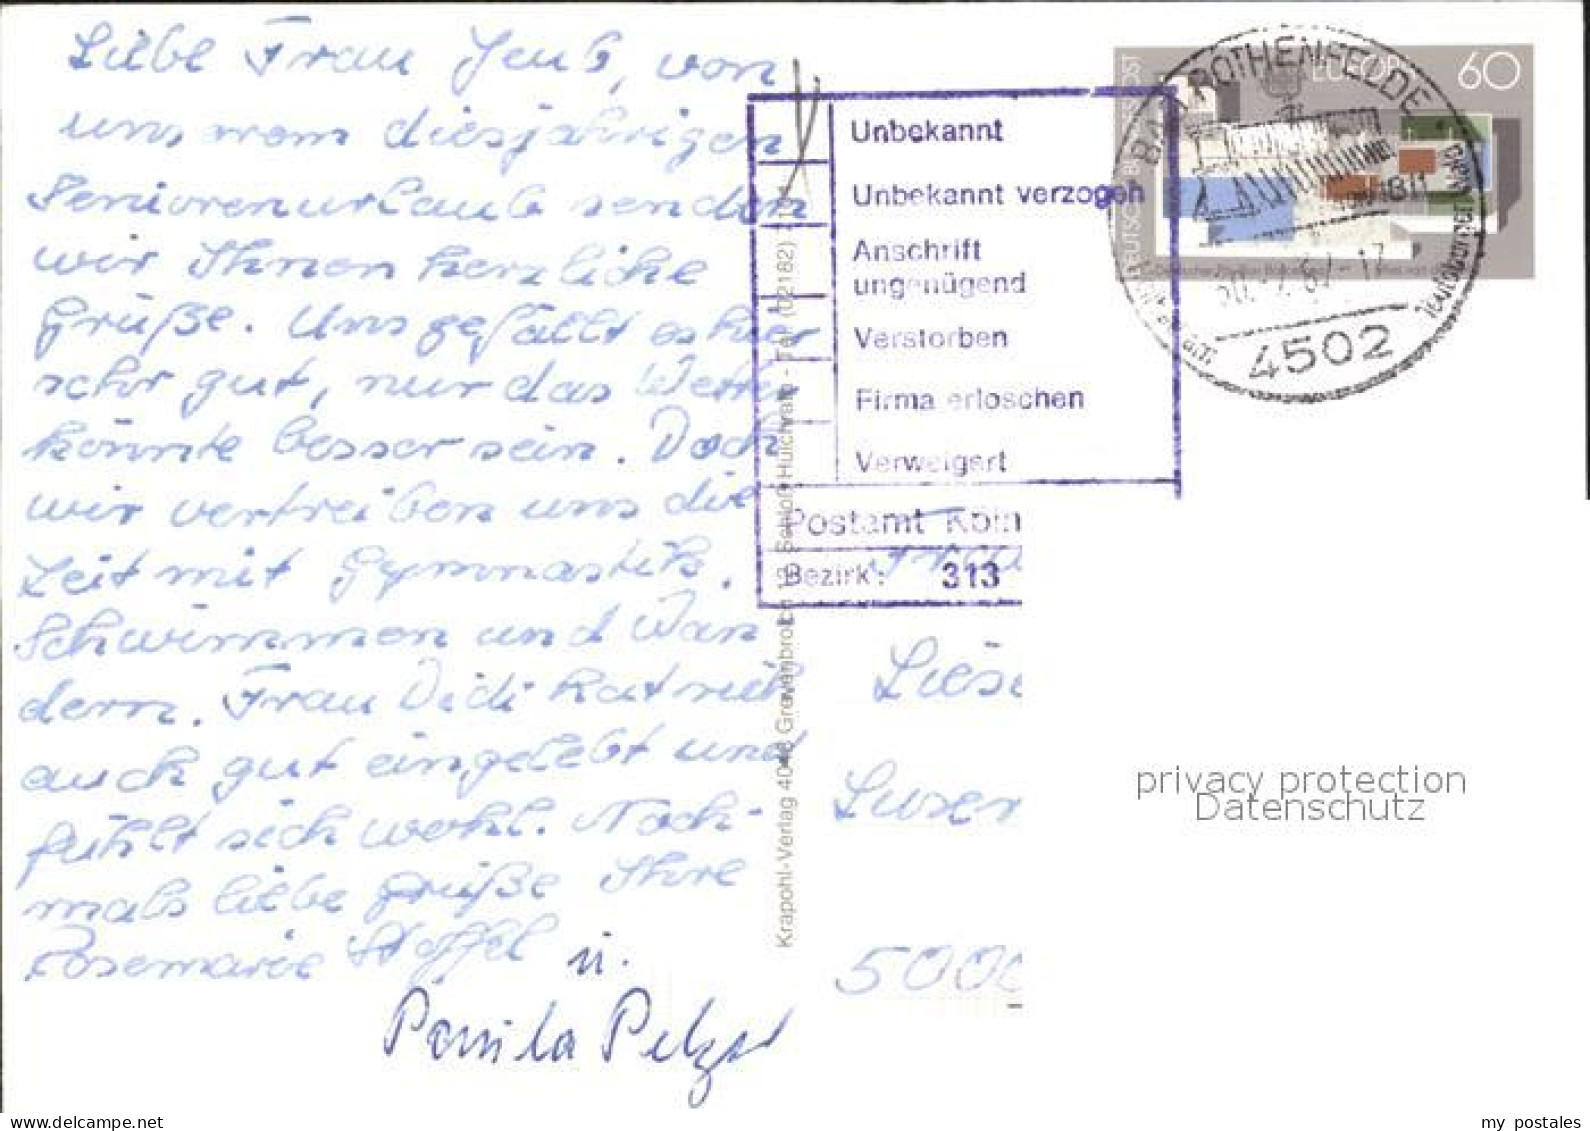 Liebe Frau Jeub, von
uns vom diesjährigen
Seniorenurlaub senden
wir Ihnen herzliche
Grüße. Uns gefällt es hier
sehr gut, nur das Wetter
könnte besser sein. Doch
wir vertreiben uns die
Zeit mit Gymnastik,
Schwimmen und Wan
dern. Frau Didi hat sich
auch gut eingelebt und
fühlt sich wohl. Noch-
mals liebe Grüße Ihre
Rosemarie Stoffel u.
Krapohl-Verlag 4048 Grevenbroich 12 Schloß Hülchrath - Tel. (02182)
Unbekannt
Unbekannt verzogen
Anschrift
ungenügend
Verstorben
Firma erloschen
Verweigert
Postamt Köln
Bezirk: 313
60
BAD ROTHENFELDE
4502
Teutoburger Wald
Luxem
5000
privacy protection
Datenschutz
my postales